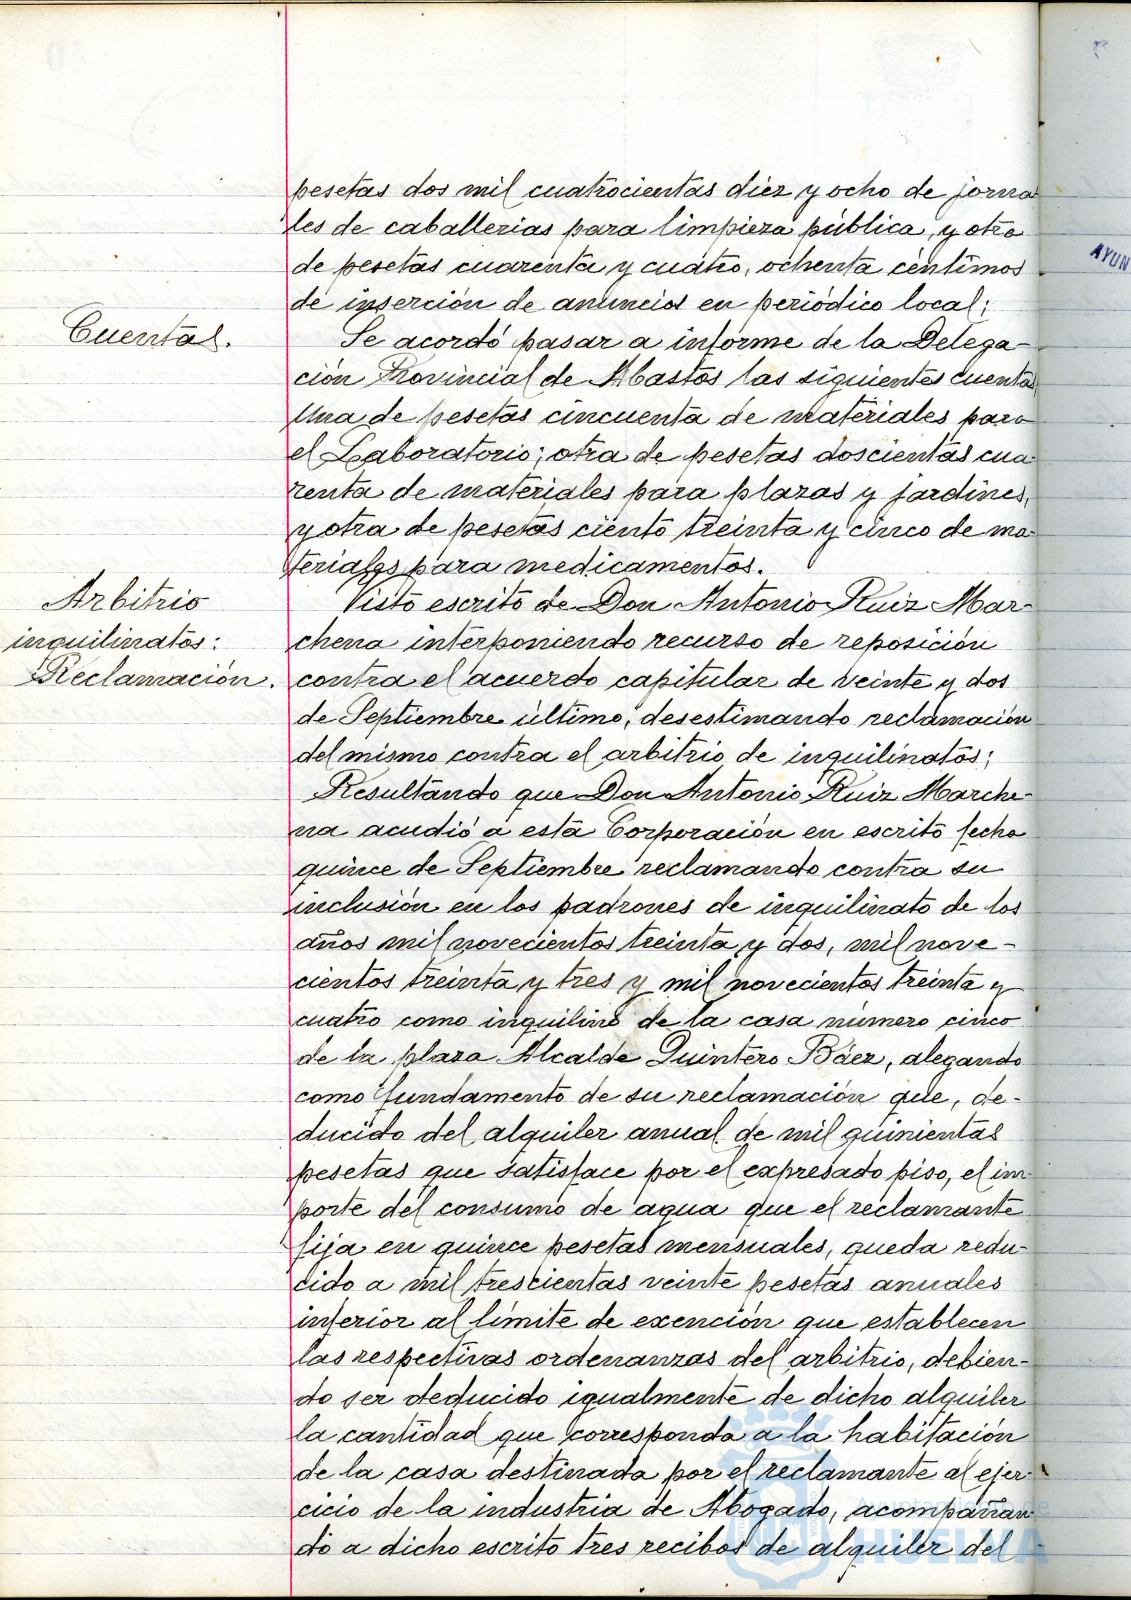 pesetas dos mil cuatrocientas diez y ocho de jorna
les de caballerias para limpieza pública, y otra
de pesetas cuarenta y cuatro, ochenta céntimos
de inserción de anuncios en periódico local;
Cuentas.
Se acordó pasar a informe de la Delega-
ción Provincial de Abastos las siguientes cuentas
Una de pesetas cincuenta de materiales para
el Laboratorio; otra de pesetas doscientas cua
renta de materiales para plazas y jardines,
y otra de pesetas ciento treinta y cinco de ma
teriales para medicamentos.
Arbitrio
inquilinatos:
Reclamación.
Visto escrito de Don Antonio Ruiz Mar-
chena interponiendo recurso de reposición
contra el acuerdo capitular de veinte y dos
de Septiembre último, desestimando reclamación
del mismo contra el arbitrio de inquilinatos;
Resultando que Don Antonio Ruiz Marche-
na acudió a esta Corporación en escrito fecha
quince de Septiembre reclamando contra su
inclusión en los padrones de inquilinato de los
años mil novecientos treinta y dos, mil nove-
cientos treinta y tres y mil novecientos treinta y
cuatro como inquilino de la casa número cinco
de la plaza Alcalde Quintero Báez, alegando
como fundamento de su reclamación que, de-
ducido del alquiler anual de mil quinientas
pesetas que satisface por el expresado piso, el im-
porte del consumo de agua que el reclamante
fija en quince pesetas mensuales, queda redu-
cido a mil trescientas veinte pesetas anuales
inferior al límite de exención que establecen
las respectivas ordenanzas del arbitrio, debien-
do ser deducido igualmente de dicho alquiler
la cantidad que corresponda a la habitación
de la casa destinada por el reclamante al ejer-
cicio de la industria de Abogado, acompañan
do a dicho escrito tres recibos de alquiler del
AYUN
Ayuntamiento de
HUELVA